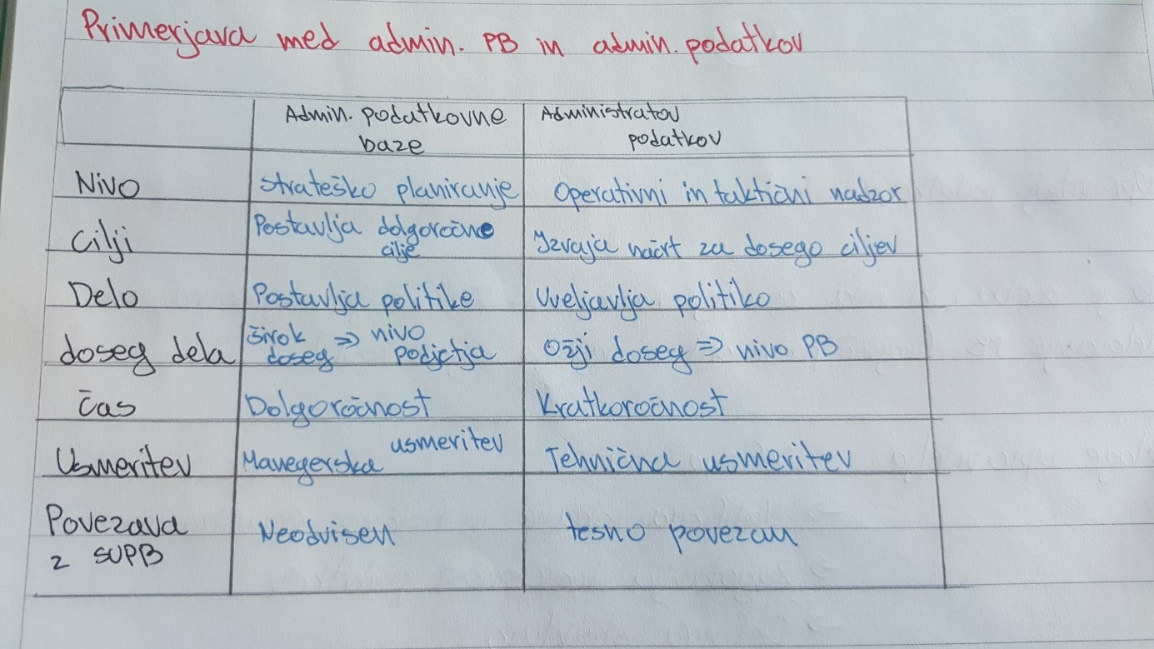 Primerjava med admin. PB in admin. podatkov
Admin. podatkovne
baze
Administrator
podatkov
Nivo
strateško planiranje
Operativni in taktični nadzor
Cilji
Postavlja dolgoročne
cilje
Izvaja načrt za dosego ciljev
Delo
Postavlja politike
Uveljavlja politiko
doseg dela
širok
doseg => nivo
podjetja
Ožji doseg => nivo PB
čas
Dolgoročnost
Kratkoročnost
Usmeritev
Manegerska usmeritev
Tehnična usmeritev
Povezava
z SUPB
Neodvisen
tesno povezan